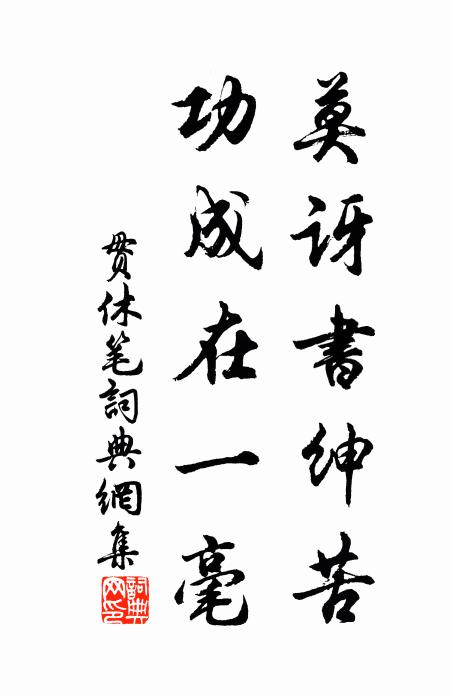 莫訝書紳苦
功成在一毫
貫休笔詞典網集
詞典网印